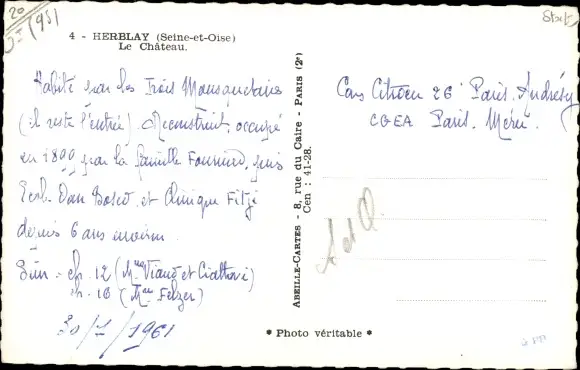 20
(95)
Stort
4 - HERBLAY (Seine-et-Oise)
Le Château.
Habité par les Trois Mousquetaires
(il reste l'entrée). Reconstruit, occupé
en 1800 par la famille Fournier, puis
Ecole Don Bosco et Clinique Fitzi
depuis 6 ans environ.
ch. 12 (Mmes Viaud et
ch. 16 (Mme Felzer)
30/7/1961
ABEILLE-CARTES - 8, rue du Caire - PARIS (2e)
Cen : 41-28.
Cars Citroën 26 Paris. Andrésy
CGEA Paris. Méru.
A et O.
* Photo véritable *